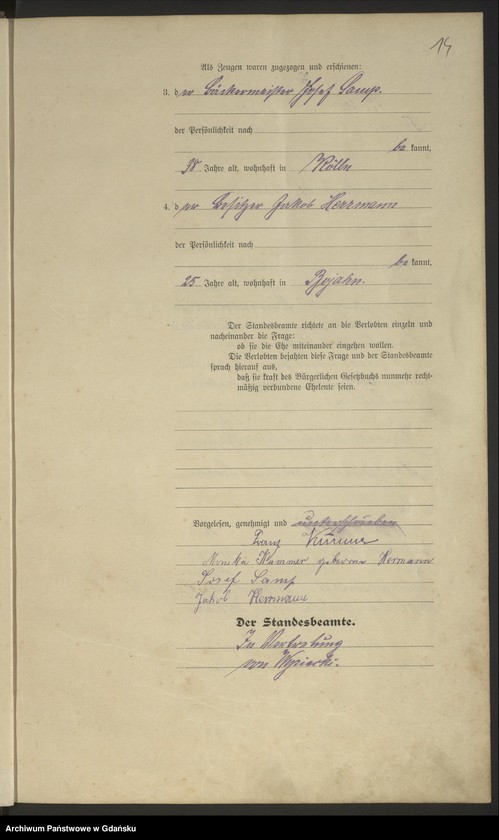 14
Als Zeugen waren zugezogen und erschienen:
3. der Bäckermeister Josef Samp.
der Persönlichkeit nach
be kannt,
38 Jahre alt, wohnhaft in Kölln
4. der Besitzer Jakob Herrmann
der Persönlichkeit nach
be kannt,
25 Jahre alt, wohnhaft in Bojahn.
Der Standesbeamte richtete an die Verlobten einzeln und
nacheinander die Frage:
ob sie die Ehe miteinander eingehen wollen.
Die Verlobten bejahten diese Frage und der Standesbeamte
sprach hierauf aus,
daß sie kraft des Bürgerlichen Gesetzbuchs nunmehr recht-
mäßig verbundene Eheleute seien.
Vorgelesen, genehmigt und unterschrieben
Franz
Monika geborene Hermann
Josef Samp
Jakob Herrmann
Der Standesbeamte.
In Vertretung
von
Archiwum Państwowe w Gdańsku